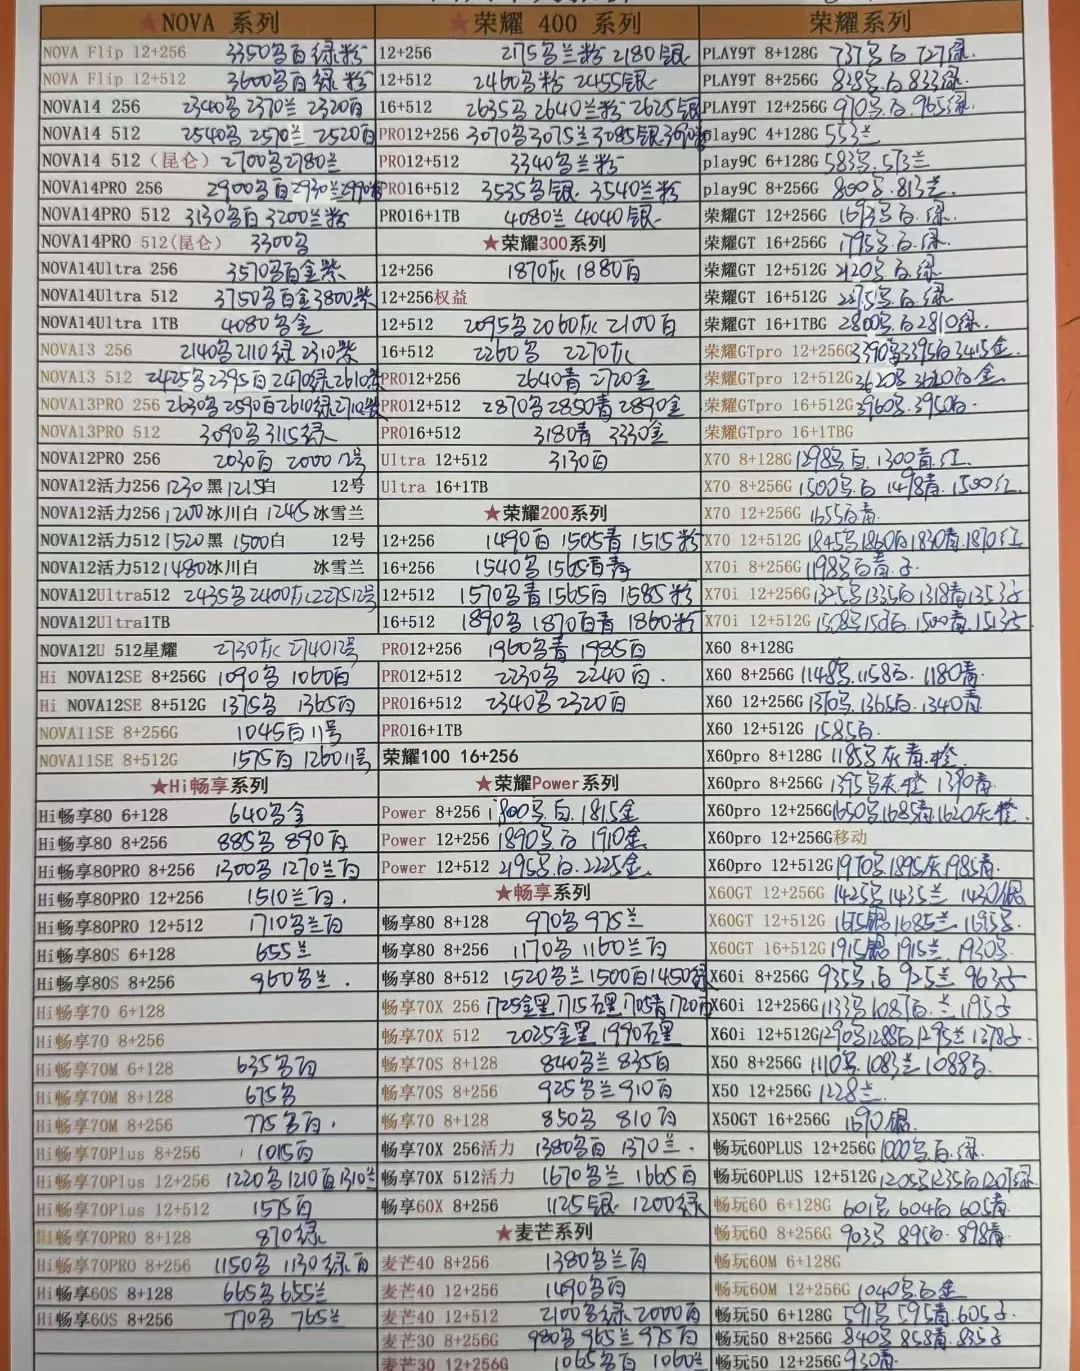 ★NOVA 系列
NOVA Flip 12+256 3350名白绿粉
NOVA Flip 12+512 3600名白绿粉
NOVA14 256 2340名2370兰 2320白
NOVA14 512 2540名2570兰 2520白
NOVA14 512（昆仑）2700名2780兰
NOVA14PRO 256 2900名白2930兰2990粉
NOVA14PRO 512 3130名白3200兰粉
NOVA14PRO 512(昆仑) 3300名
NOVA14Ultra 256 3570名白金紫
NOVA14Ultra 512 3750名白金3800紫
NOVA14Ultra 1TB 4080名金
NOVA13 256 2140名2110绿2310紫
NOVA13 512 2425名2395白2470绿2610紫
NOVA13PRO 256 2630名2590白2610绿2710紫
NOVA13PRO 512 3090名3115绿
NOVA12PRO 256 2030白 2000 12号
NOVA12活力256 1230黑1215白 12号
NOVA12活力256 1200冰川白 1245冰雪兰
NOVA12活力512 1520黑 1500白 12号
NOVA12活力512 1480冰川白 冰雪兰
NOVA12Ultra512 2435名2400灰2275 12号
NOVA12Ultra1TB
NOVA12U 512星耀 2730灰 2740 12号
Hi NOVA12SE 8+256G 1090名 1060白
Hi NOVA12SE 8+512G 1375名 1365白
NOVA11SE 8+256G 1045白 11号
NOVA11SE 8+512G 1575白 1260 11号
★Hi畅享系列
Hi畅享80 6+128 640名金
Hi畅享80 8+256 885名 890白
Hi畅享80PRO 8+256 1300名 1270兰白
Hi畅享80PRO 12+256 1510兰白.
Hi畅享80PRO 12+512 1710名兰白
Hi畅享80S 6+128 655兰
Hi畅享80S 8+256 960名兰.
Hi畅享70 6+128
Hi畅享70 8+256
Hi畅享70M 6+128 635名白
Hi畅享70M 8+128 675名
Hi畅享70M 8+256 775名白.
Hi畅享70Plus 8+256 1015白
Hi畅享70Plus 12+256 1220名1210白1310兰
Hi畅享70Plus 12+512 1575白
Hi畅享70PRO 8+128 870绿
Hi畅享70PRO 8+256 1150名 1130绿白
Hi畅享60S 8+128 665名655兰
Hi畅享60S 8+256 770名 765兰
★荣耀 400 系列
12+256 2175名兰粉 2180银
12+512 2460名粉 2455银
16+512 2635名2640兰粉2625银
PRO12+256 3070名3075兰3085银
PRO12+512 3340名兰粉
PRO16+512 3535名银 3540兰粉
PRO16+1TB 4080兰 4040银
★荣耀300系列
12+256 1870灰 1880白
12+256权益
12+512 2095名2060灰2100白
16+512 2260名 2270灰
PRO12+256 2640青2720金
PRO12+512 2870名2850青2890金
PRO16+512 3180青 3330金
Ultra 12+512 3130白
Ultra 16+1TB
★荣耀200系列
12+256 1490白 1505青 1515粉
16+256 1540名1565白青
12+512 1570名青1565白1585粉
16+512 1890名1870白青1860粉
PRO12+256 1960名青 1985白
PRO12+512 2230名 2240白.
PRO16+512 2340名2320白
PRO16+1TB
荣耀100 16+256
★荣耀Power系列
Power 8+256 1800名白.1815金
Power 12+256 1890名白 1910金
Power 12+512 2195名白.2225金
★畅享系列
畅享80 8+128 970名975兰
畅享80 8+256 1170名1160兰白
畅享80 8+512 1520名兰1500白1450绿
畅享70X 256 1725金黑1715石黑1705青1720白
畅享70X 512 2025金黑1990石黑
畅享70S 8+128 840名兰835白
畅享70S 8+256 925名兰910白
畅享70 8+128 850名 810白
畅享70X 256活力 1380名白1370兰.
畅享70X 512活力 1670名兰 1665白
畅享60X 8+256 1125银 1200绿
★麦芒系列
麦芒40 8+256 1380名兰白
麦芒40 12+256 1490名白
麦芒40 12+512 2100名绿2000白
麦芒30 8+256G 980名965兰975白
麦芒30 12+256G 1065名白1060兰
荣耀系列
PLAY9T 8+128G 737名白727绿
PLAY9T 8+256G 828名白833绿
PLAY9T 12+256G 970名白965绿
play9C 4+128G 553兰
play9C 6+128G 583名.573兰
play9C 8+256G 800名.813兰.
荣耀GT 12+256G 1693名白.绿.
荣耀GT 16+256G 1795名白.绿
荣耀GT 12+512G 2120名白.绿
荣耀GT 16+512G 2275名白.绿
荣耀GT 16+1TBG 2800名白2810绿.
荣耀GTpro 12+256G 3390名3395白3415金
荣耀GTpro 12+512G 3620名3640白金
荣耀GTpro 16+512G 3960名.3950白.
荣耀GTpro 16+1TBG
X70 8+128G 1298名白.1300青.红
X70 8+256G 1500名白1498青.1500红
X70 12+256G 1655白青
X70 12+512G 1845名1860白1830青1870红
X70i 8+256G 1198名白青.子
X70i 12+256G 1325名1335白1318青1353子
X70i 12+512G 1508名 1500青.1513子
X60 8+128G
X60 8+256G 1148名.1158白.1180青
X60 12+256G 1370名.1365白.1340青
X60 12+512G 1585白.
X60pro 8+128G 1185名灰青.橙
X60pro 8+256G 1395名灰.橙1390青
X60pro 12+256G 1650名1685青1620灰橙.
X60pro 12+256G移动
X60pro 12+512G 1970名1895灰1985青.
X60GT 12+256G 1425名1435兰1430银
X60GT 12+512G 1675银1685兰1695名
X60GT 16+512G 1915银1915兰.1930名
X60i 8+256G 935名.白925兰963子
X60i 12+256G 1133名1087白.兰1195子
X60i 12+512G 1290名1288白1295兰1378子.
X50 8+256G 1110名.1083兰1088名.
X50 12+256G 1228兰.
X50GT 16+256G 1690银
畅玩60PLUS 12+256G 1000名白.绿.
畅玩60PLUS 12+512G 1205名1235白1207绿
畅玩60 6+128G 601名604白605青
畅玩60 8+256G 903名895白.898青
畅玩60M 6+128G
畅玩60M 12+256G 1040名白金
畅玩50 6+128G 591名595青.605子
畅玩50 8+256G 840名858青.835子
畅玩50 12+256G 930青